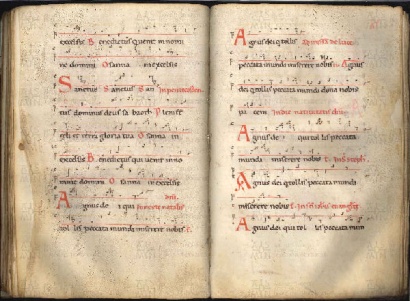 excelsis Benedictus qui uenit in nomi
ne domini Osanna in excelsis
Sanctus Sanctus San
tus dominus deus sabaoth Pleni s
celi et terra gloria tua Osanna in
excelsis Benedictus qui uenit in no
mine domini Osanna in excelsis
Agnus de i qui
tol lis peccata mundi miserere nobis
Agnus dei qi tollis
peccata mundi miserere nobis Agnus
dei qi tollis peccata mundi dona nobis
pa cem
Agnus de qui tol lis peccata
mundi miserere nobis
Agnus dei qi tollis peccata mundi
miserere nobis
Agnus dei qui tol lis peccata mun